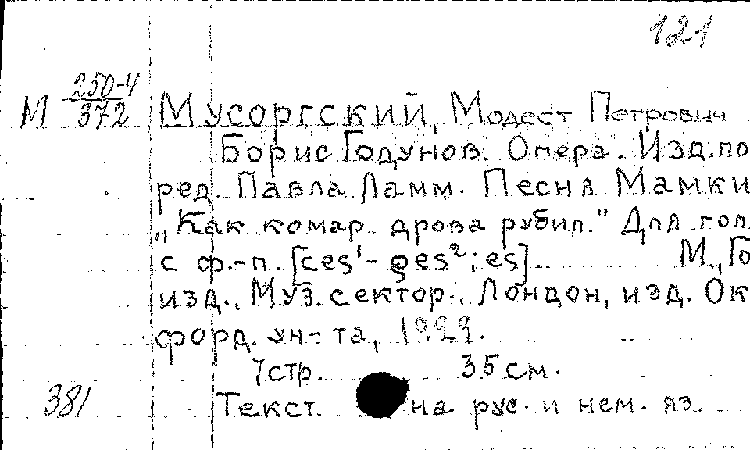 121
М 250-4/372 Мусоргский, Модест Петрович
Борис Годунов. Опера. Изд. по
ред. Павла Ламм. Песня Мамки
„Как комар дрова рубил." Для гол.
с ф.-п. [ces¹ - ges²; es]. М., Го
изд., Муз. сектор., Лондон, изд. Ок
форд. ун-та, 1929.
7 стр. 35 см.
381 Текст на рус. и нем. яз.